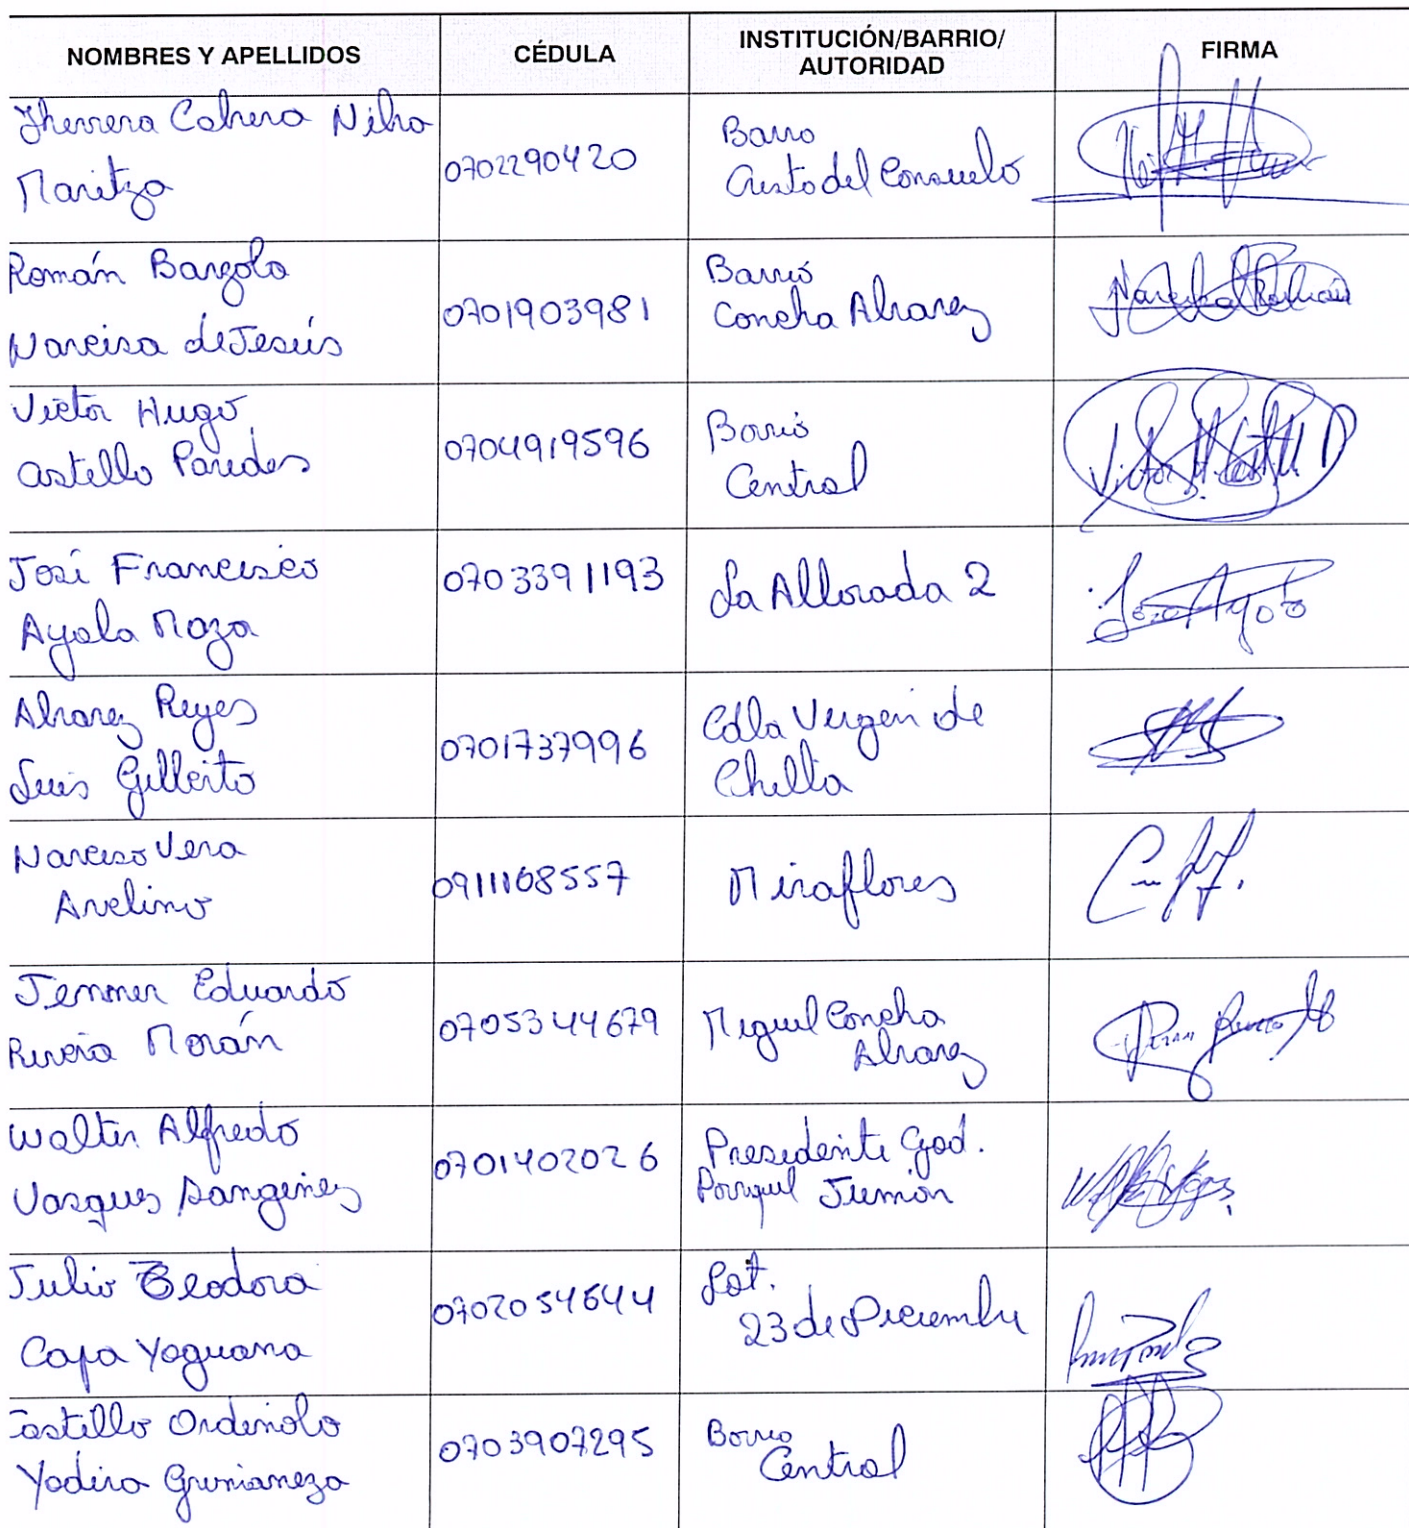 NOMBRES Y APELLIDOS CÉDULA INSTITUCIÓN/BARRIO/ FIRMA
AUTORIDAD
Cabrera
Maritza 0702290420 Barrio
Cristo del Consuelo
Román Barzola
Narcisa de Jesús 0701903981 Barrio
Concha Alvarez
Victor Hugo
Castillo Paredes 0704919596 Barrio
Central
José Francisco
Ayala Maza 0703391193 La Alborada 2
Jose Ayala
Alvarez Reyes
Luis Gilberto 0701737996 Cdla Vergen de
Chilla
Narciso Vera
Avelino 0911108557 Miraflores
Jenner Eduardo
Rivera Morán 0705344679 Miguel Concha
Alvarez
Walter Alfredo
Vasques 0701402026 Presidente Gad.
Jumón
Julio Teodora
Capa Yaguana 0702054644 Lot.
23 de Diciembre
Castillo Ordenola
Yadira 0703907295 Barrio
Central